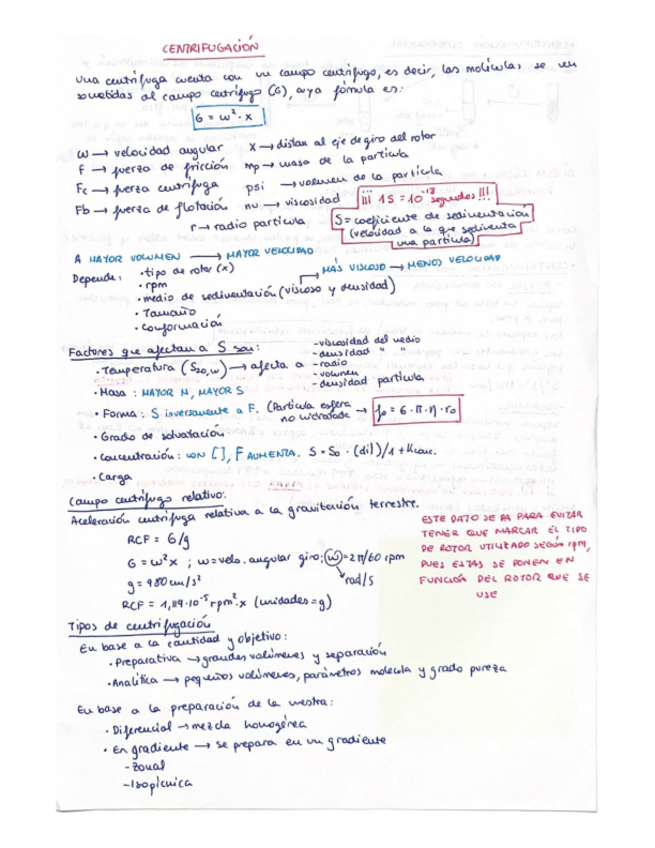 CENTRIFUGACIÓN
Una centrífuga cuenta con un campo centrífugo, es decir, las moléculas se ven
sometidas al campo centrífugo (G), cuya fórmula es:
G = ω²·x
ω → velocidad angular x → distan al eje de giro del rotor
f → fuerza de fricción mp → masa de la partícula
Fc → fuerza centrífuga psi → volumen de la partícula
Fb → fuerza de flotación nu → viscosidad ¡¡¡ 1S = 10⁻¹³ segundos!!!
r → radio partícula S = coeficiente de sedimentación
(velocidad a la que sedimenta
una partícula)
A MAYOR VOLUMEN → MAYOR VELOCIDAD
MÁS VISCOSO → MENOS VELOCIDAD
Depende: · tipo de rotor (x)
· rpm
· medio de sedimentación (viscoso y densidad)
· Tamaño
· Conformación
Factores que afectan a S son:
- viscosidad del medio
- densidad " "
· Temperatura (S20,w) → afecta a - radio
- volumen
- densidad partícula
· Masa : MAYOR M, MAYOR S
· Forma : S inversamente a F. (Partícula esfera
no hidratada → fo = 6·π·η·ro
· Grado de solvatación
· Concentración: CON [ ], F AUMENTA. S = So · (dil)/1 + Kconc.
· Carga
Campo centrífugo relativo:
Aceleración centrífuga relativa a la gravitación terrestre.
RCF = G/g
G = ω²x ; ω = velo. angular giro; ω = 2π/60 rpm
rad/s
g = 980 cm/s²
RCF = 1,119·10⁻⁵ rpm²·x (unidades = g)
ESTE DATO SE DA PARA EVITAR
TENER QUE MARCAR EL TIPO
DE ROTOR UTILIZADO SEGÚN rpm,
PUES ESTAS SE PONEN EN
FUNCIÓN DEL ROTOR QUE SE
USE
Tipos de centrifugación
En base a la cantidad y objetivo:
· Preparativa → grandes volúmenes y separación
· Analítica → pequeños volúmenes, parámetros molécula y grado pureza
En base a la preparación de la mestra:
· Diferencial → mezcla homogénea
· En gradiente → se prepara en un gradiente
- zonal
- Isopícnica